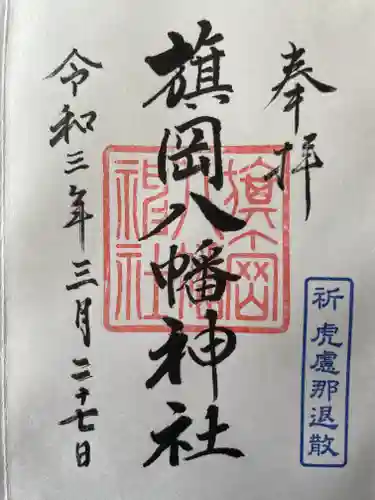 奉拝
旗岡八幡神社
令和三年三月二十七日
祈虎盧那退散
旗岡八幡神社